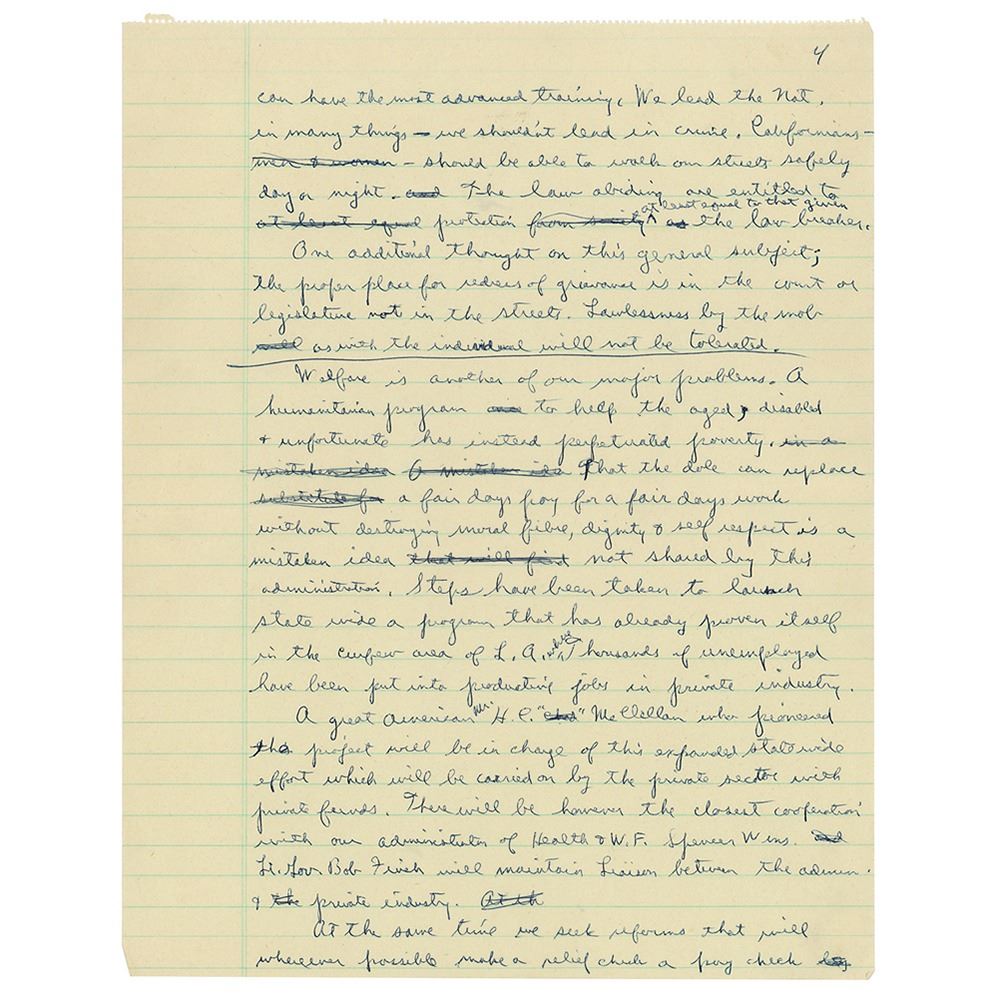 4
can have the most advanced training. We lead the Nat.
in many things – we shouldn't lead in crime. Californians –
men & women – should be able to walk our streets safely
day or night. and The law abiding are entitled to
at least equal to that given
at least equal protection from society as the law breaker.
One additional thought on this general subject;
the proper place for redress of grievance is in the court or
legislature not in the streets. Lawlessness by the mob
will as with the individual will not be tolerated.
Welfare is another of our major problems. A
humanitarian program to help the aged, disabled
& unfortunate has instead perpetuated poverty. in a
mistaken idea A mistaken idea That the dole can replace
substitute for a fair days pay for a fair days work
without destroying moral fibre, dignity & self respect is a
mistaken idea that will find not shared by this
administration. Steps have been taken to launch
state wide a program that has already proven itself
in the curfew area of L.A. where Thousands of unemployed
have been put into productive jobs in private industry.
A great American Mr. H.C. "Chad" McClellan who pioneered
the project will be in charge of this expanded statewide
effort which will be carried on by the private sector with
private funds. There will be however the closest cooperation
with our administrator of Health & W.F. Spencer Wms. and
Lt. Gov. Bob Finch will maintain Liaison between the admin.
& the private industry. At th
At the same time we seek reforms that will
wherever possible make a relief check a pay check by